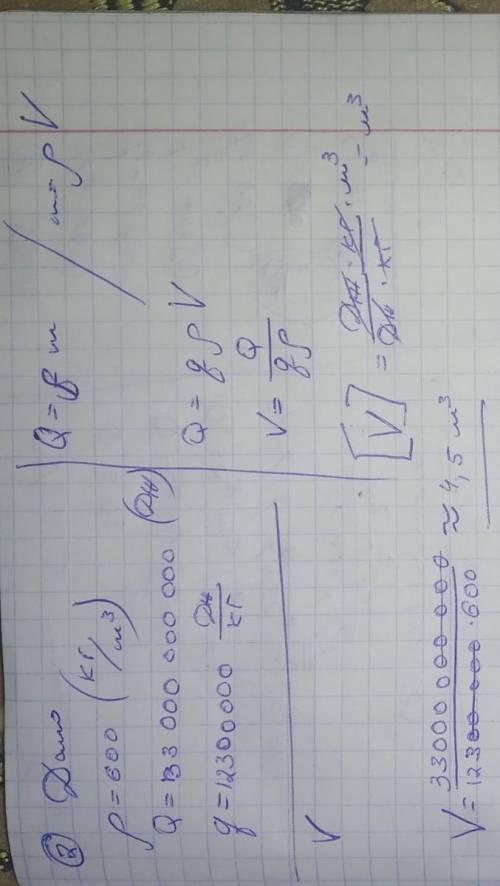 ② Дано
ρ = 600 (кг/м³)
Q = 133 000 000 000 (Дж)
q = 12300000 Дж/кг
V
Q = q m / m = ρ V
Q = q ρ V
V = Q/qρ
[V] = Дж · кг · м³/Дж · кг = м³
V = 33000 000 000/12300 000 · 600 ≈ 4,5 м³